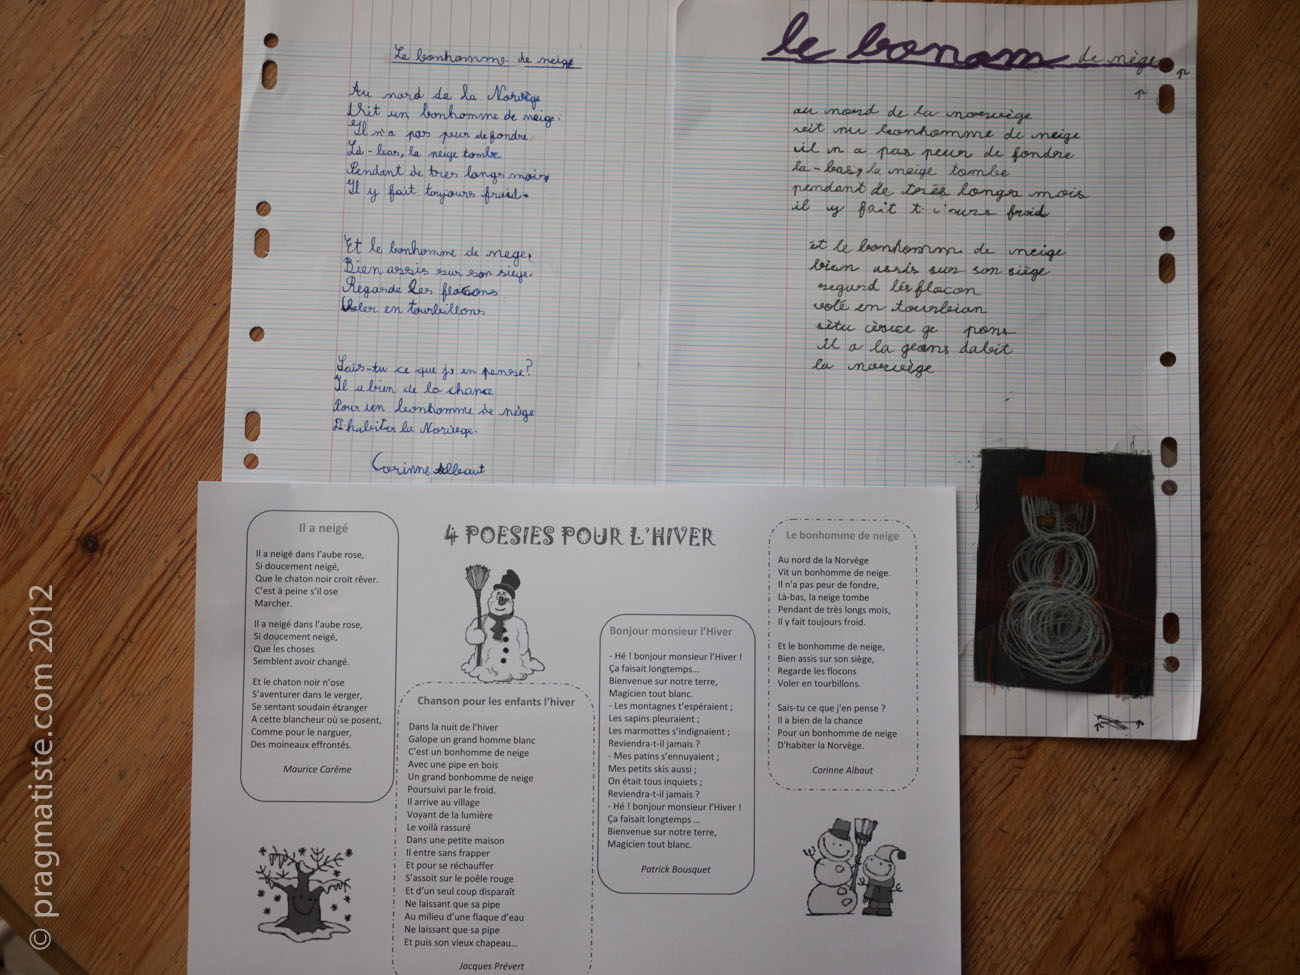 Le bonhomme de neige
Au nord de la Norvège
Vit un bonhomme de neige.
Il n'a pas peur de fondre.
Là-bas, la neige tombe
Pendant de tres longs mois,
Il y fait toujours froid.
Et le bonhomme de nege,
Bien assis sur son siege.
Regarde les flocons
Voler en tourbillons
Sais-tu ce que j, en pense?
Il a bien de la chance
Pour un bonhomme de neige
D'habiter la Norvege.
Corinne Albaut
le bonam de nège
au nord de la norvège
vit nu bonhomme de neige
il n a pas peur de fondre
la-bas, la neige tombe
pendant de très longs mois
il y fait froid
et le bonhomm de neige
bien assis sur son siège
regard lés flocon
volé en tourbian
sètu ge pons
il a la geans dabit
la norvège
4 POESIES POUR L'HIVER
Il a neigé
Il a neigé dans l'aube rose,
Si doucement neigé,
Que le chaton noir croit rêver.
C'est à peine s'il ose
Marcher.
Il a neigé dans l'aube rose,
Si doucement neigé,
Que les choses
Semblent avoir changé.
Et le chaton noir n'ose
S'aventurer dans le verger,
Se sentant soudain étranger
A cette blancheur où se posent,
Comme pour le narguer,
Des moineaux effrontés.
Maurice Carême
Chanson pour les enfants l'hiver
Dans la nuit de l'hiver
Galope un grand homme blanc
C'est un bonhomme de neige
Avec une pipe en bois
Un grand bonhomme de neige
Poursuivi par le froid.
Il arrive au village
Voyant de la lumière
Le voilà rassuré
Dans une petite maison
Il entre sans frapper
Et pour se réchauffer
S'assoit sur le poêle rouge
Et d'un seul coup disparaît
Ne laissant que sa pipe
Au milieu d'une flaque d'eau
Ne laissant que sa pipe
Et puis son vieux chapeau...
Jacques Prévert
Bonjour monsieur l'Hiver
- Hé ! bonjour monsieur l'Hiver !
Ça faisait longtemps...
Bienvenue sur notre terre,
Magicien tout blanc.
- Les montagnes t'espéraient ;
Les sapins pleuraient ;
Les marmottes s'indignaient ;
Reviendra-t-il jamais ?
- Mes patins s'ennuyaient ;
Mes petits skis aussi ;
On était tous inquiets ;
Reviendra-t-il jamais ?
- Hé ! bonjour monsieur l'Hiver !
Ça faisait longtemps ...
Bienvenue sur notre terre,
Magicien tout blanc.
Patrick Bousquet
Le bonhomme de neige
Au nord de la Norvège
Vit un bonhomme de neige.
Il n'a pas peur de fondre,
Là-bas, la neige tombe
Pendant de très longs mois,
Il y fait toujours froid.
Et le bonhomme de neige,
Bien assis sur son siège,
Regarde les flocons
Voler en tourbillons.
Sais-tu ce que j'en pense ?
Il a bien de la chance
Pour un bonhomme de neige
D'habiter la Norvège.
Corinne Albaut
© pragmatiste.com 2012